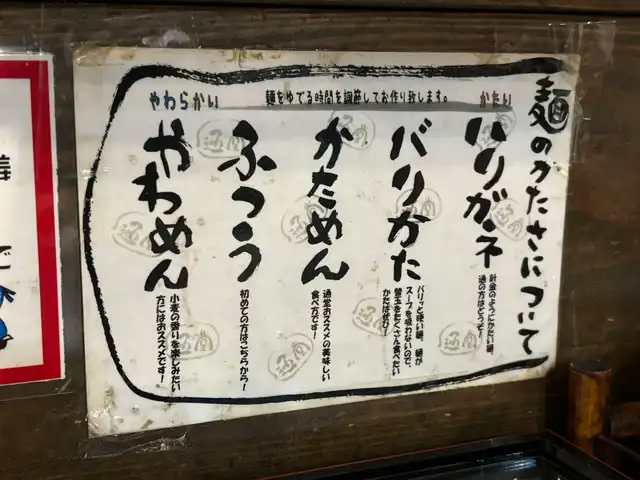 麺のかたさについて
かたい
麺をゆでる時間を調節してお作り致します。
やわらかい
ハリガネ
針金のようにかたい麺、
通の方はどうぞ！
バリかた
バリッと硬い麺、麺が
スープを吸わないので、
替玉をたくさん食べたい
かたはぜひ！
かためん
通堂おススメの美味しい
食べ方です！
ふつう
初めての方はこちらから！
やわめん
小麦の香りを楽しみたい
方にはおススメです！